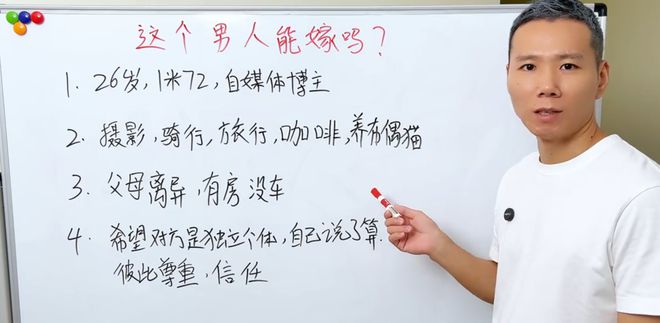 这个男人能嫁吗？
1. 26岁，1米72，自媒体博主
2. 摄影，骑行，旅行，咖啡，养布偶猫
3. 父母离异，有房没车
4. 希望对方是独立个体，自己说了算.
彼此尊重，信任